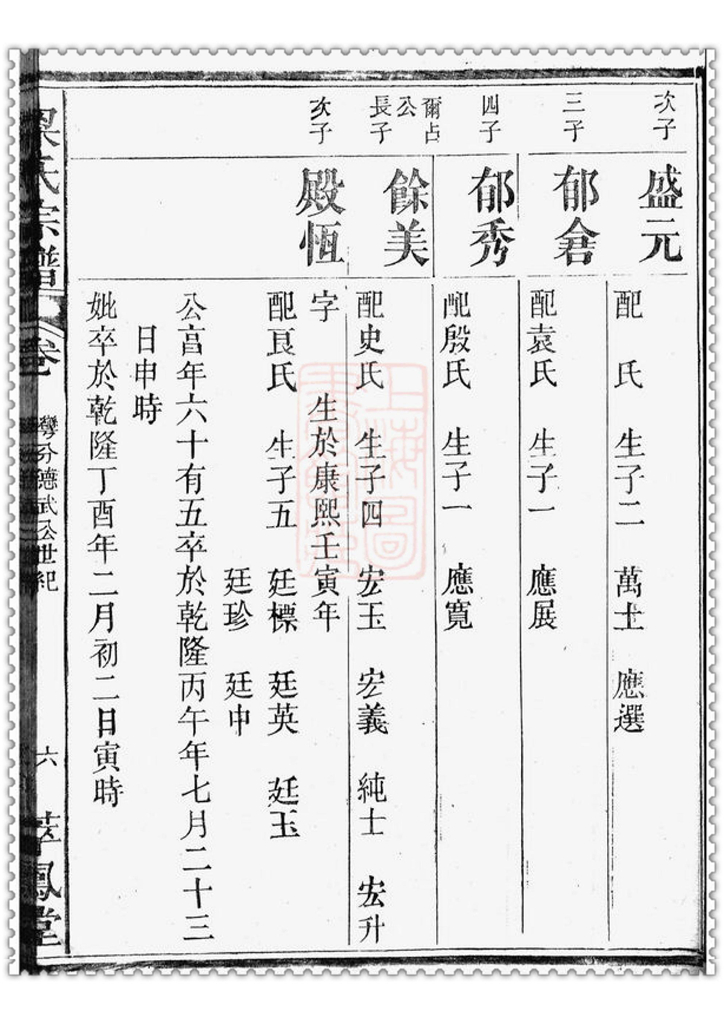 次子
盛元
配　氏　生子二　萬士　應選
三子
郁侖
配袁氏　生子一　應展
四子
郁秀
配殷氏　生子一　應寬
爾占
公
長子
餘美
配史氏　生子四　宏玉　宏義　純士　宏升
次子
殿恆
字　　生於康熙壬寅年
配良氏　生子五　廷標　廷英　廷玉
廷珍　廷申
公享年六十有五卒於乾隆丙午年七月二十三
日申時
妣卒於乾隆丁酉年二月初二日寅時
梁氏宗譜
卷
學分德武公世紀
六
萃鳳堂
上海圖
書館藏